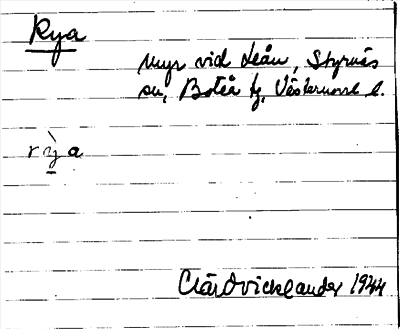 Rya
Myr vid Leån, Styrnäs
sn, Boteå tg, Västernorrl l.
rỳa
Wicklander 1944